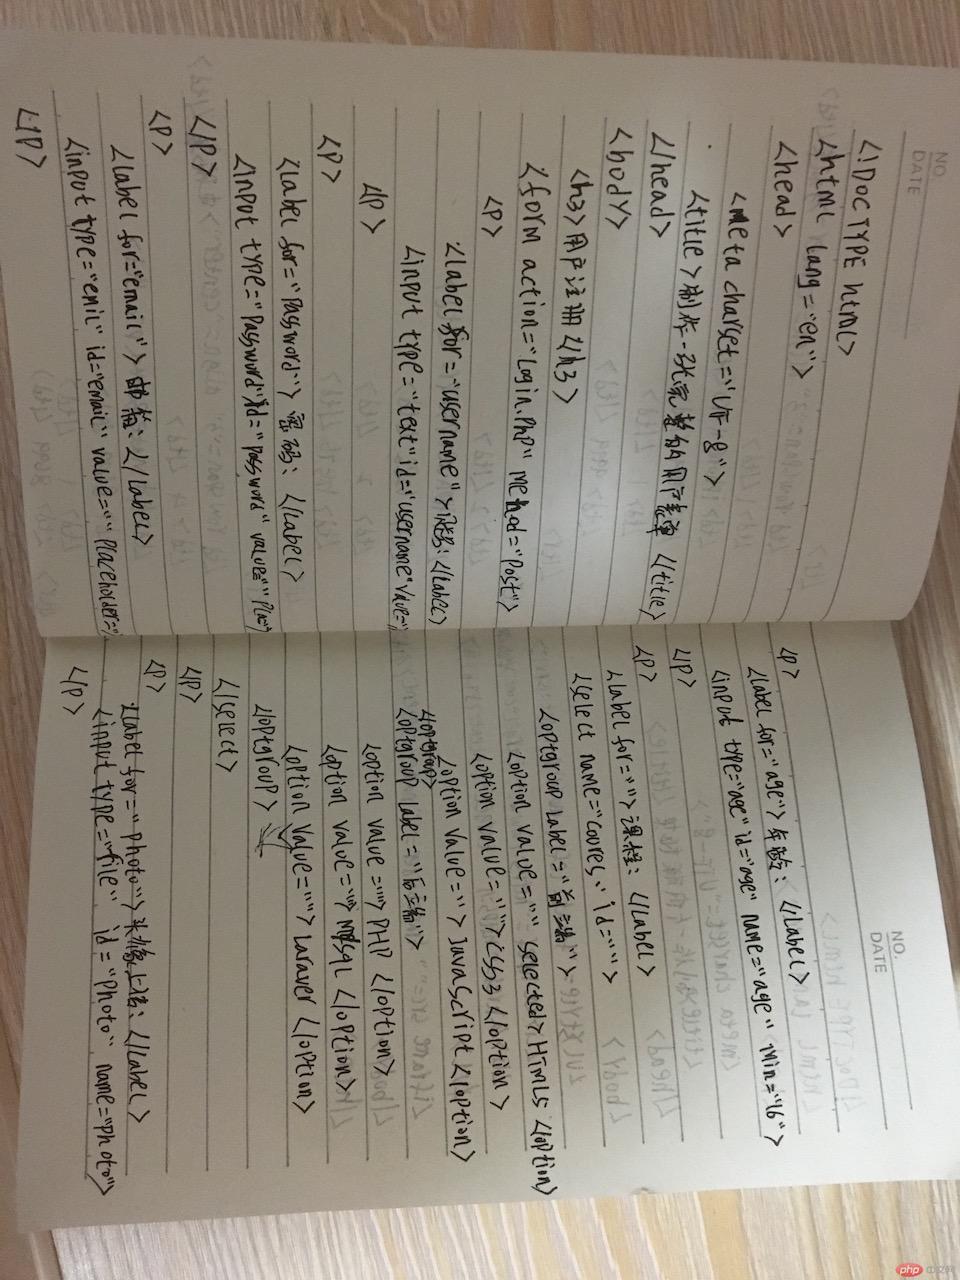 NO.
DATE
<!DOCTYPE html>
<html lang="en">
<head>
<meta charset="UTF-8">
<title>制作一张完整的用户表单</title>
</head>
<body>
<h3>用户注册</h3>
<form action="Login.PhP" method="Post">
<p>
<label for="username">账号:</label>
<input type="text" id="username" value="
</p>
<p>
<label for="Password">密码:</label>
<input type="Password" id="Password" value="" Pla="
</p>
<p>
<label for="email">邮箱:</label>
<input type="emil" id="email" value="" Placeholder="
</p>
NO.
DATE
<p>
<label for="age">年龄:</label>
<input type="age" id="age" name="age" min="16">
</p>
<p>
<label for="">课程:</label>
<select name="coures" id="">
<optgroup label="前端">
<option value="" selected>HTML5</option>
<option value="">CSS3</option>
<option value="">JavaScript</option>
</optgroup>
<optgroup label="后端">
<option value="">PHP</option>
<option value="">MySQL</option>
<option value="">Laraver</option>
</optgroup>
</select>
</p>
<p>
<label for="Photo">头像上传:</label>
<input type="file" id="Photo" name="Photo">
</p>
php